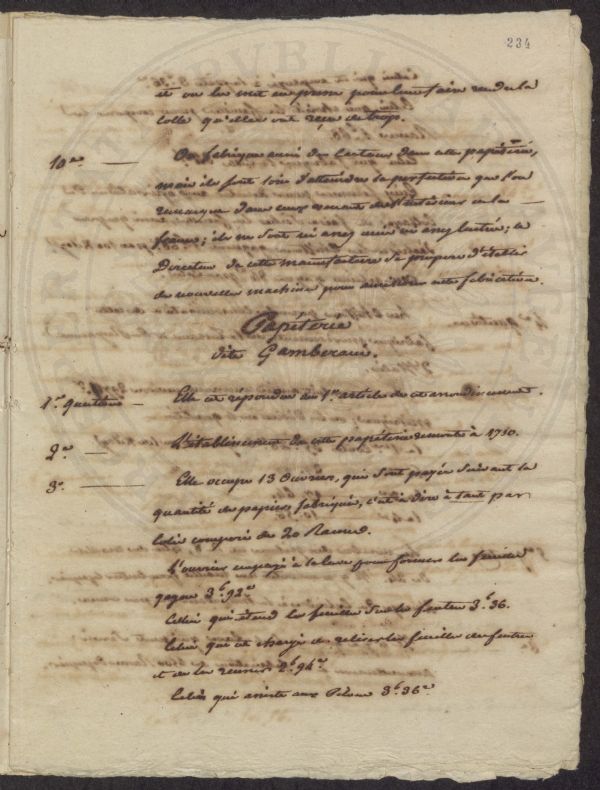 234
et on les met en presse pour leur faire rendre la
colle qu'elles ont reçu de trop.
10.e — On fabrique aussi des Cartons dans cette papéterie,
mais ils sont loin d'atteindre la perfection que l'on
remarque dans ceux venant de l'intérieur de la
france; ils ne sont ni assez unis ni assez lustrés; le
Directeur de cette manufacture se propose d'établir
de nouvelles machines pour améliorer cette fabrication.
Papéterie
dite Gamberaia.
1.re question — Elle est répondue au 1.er article de cet arrondissement.
2.e — L'établissement de cette papéterie remonte à 1710.
3.e — Elle occupe 13 Ouvriers, qui sont payés suivant la
quantité de papiers fabriqués, c'est à dire à tant par
colis composé de 20 Rames.
L'ouvrier employé à la cuve pour former les feuilles
gagne 3.f 92.c
Celui qui étend les feuilles sur les feutres 3.f 36.
Celui qui est chargé de relever les feuilles des feutres
et de les réunir 2.f 94.c
Celui qui assiste aux Pilons 3.f 36.c